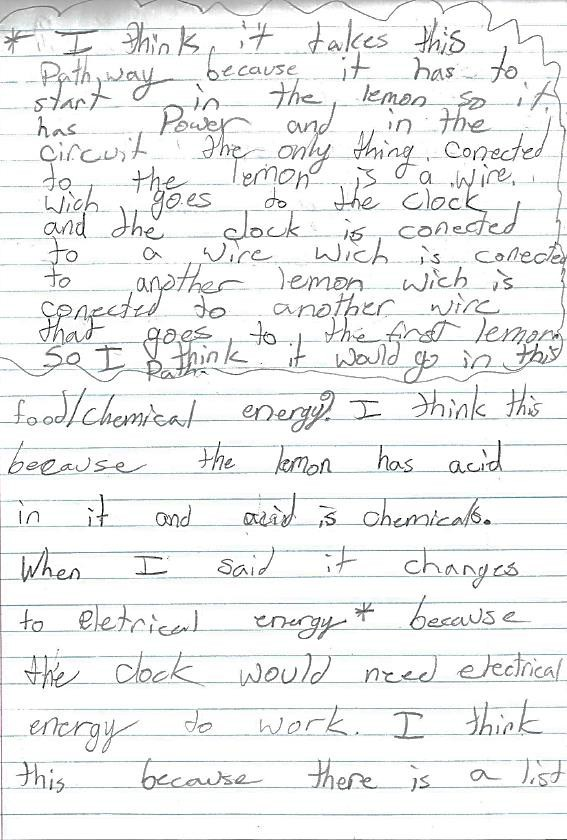 * I think it takes this
Pathway because it has to
start in the lemon so it
has Power and in the
circuit the only thing conected
to the lemon is a wire.
wich goes to the clock
and the clock is conected
to a wire wich is conected
to another lemon wich is
conected to another wire
that goes to the first lemon.
So I think it would go in this
Path.
food/chemical energy? I think this
because the lemon has acid
in it and acid is chemicals.
When I said it changes
to eletrical energy * because
the clock would need electrical
energy to work. I think
this because there is a list